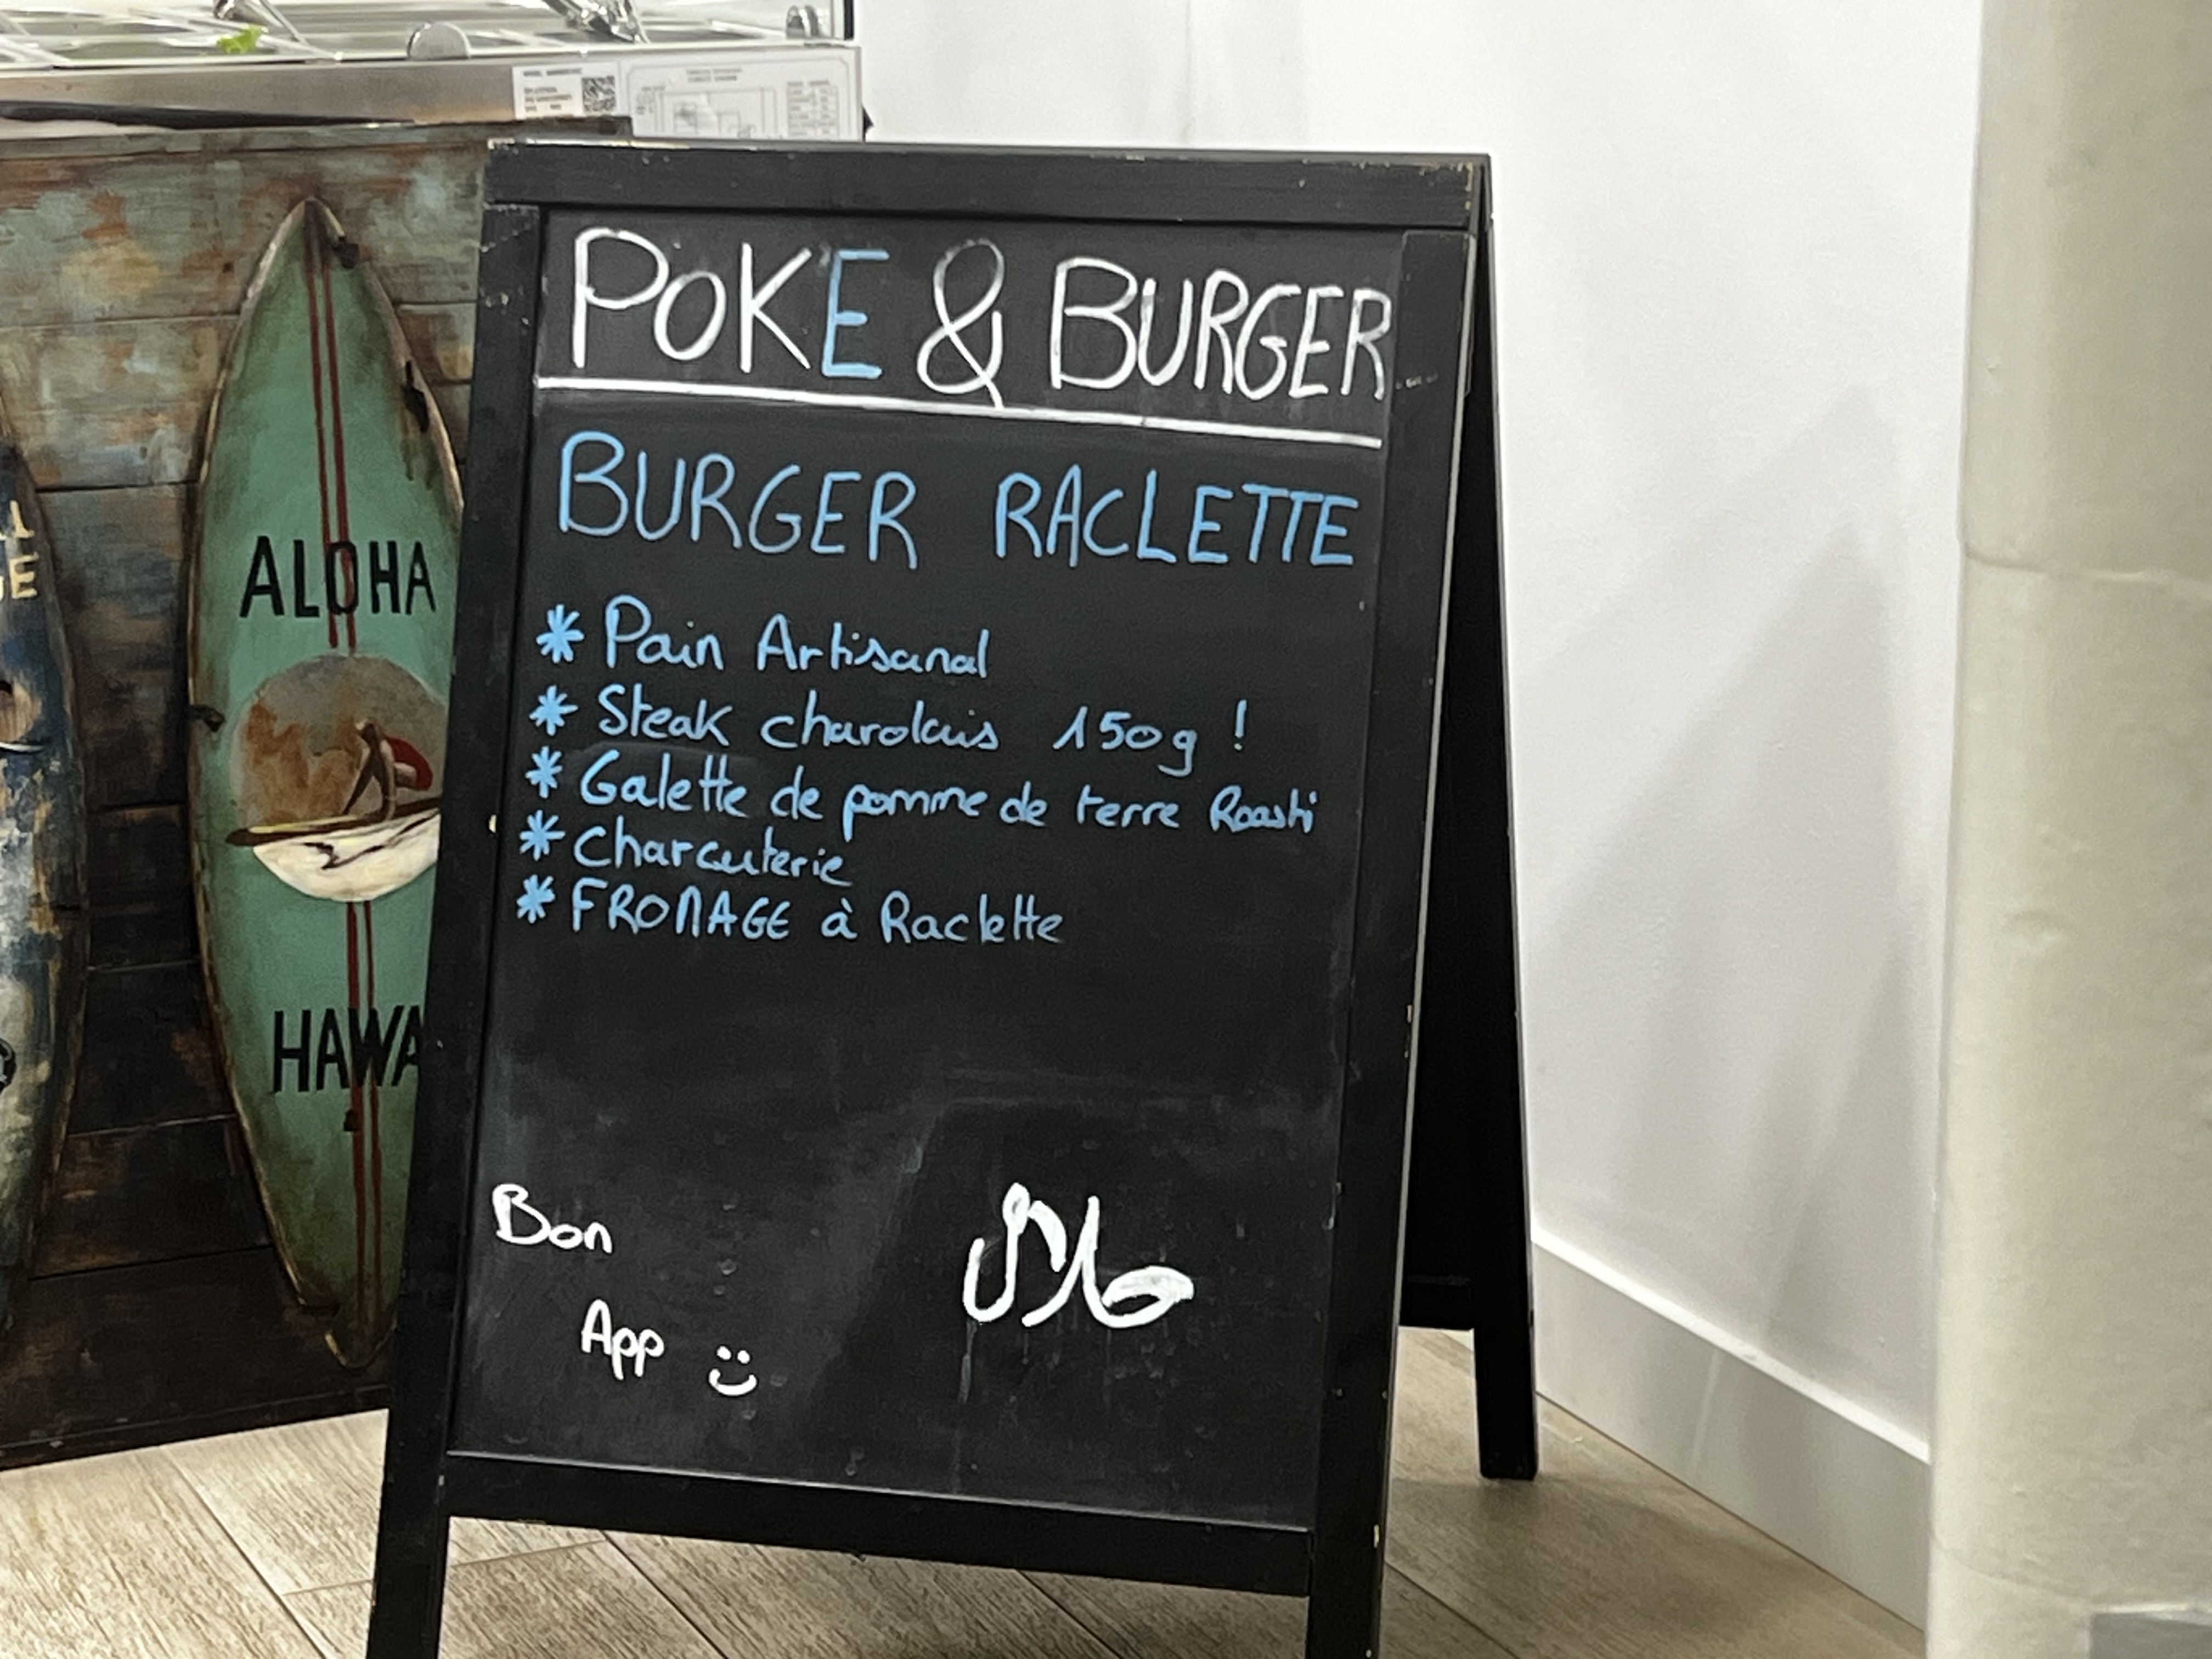 POKE & BURGER
BURGER RACLETTE
* Pain Artisanal
* Steak charolais 150g !
* Galette de pomme de terre Roasti
* Charcuterie
* FROMAGE à Raclette
Bon
App
ALOHA
HAWA